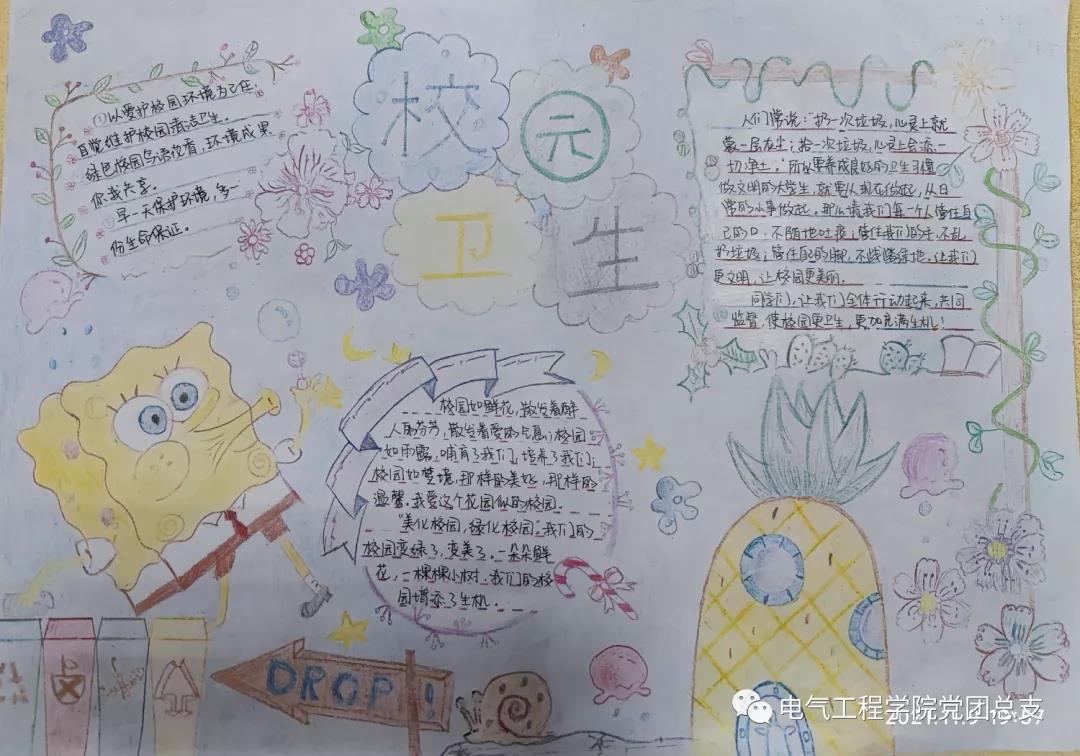 校
元
卫
生
①以爱护校园环境为己任,
自觉维护校园清洁卫生。
绿色校园鸟语花香,环境成果
你我共享。
早一天保护环境,多一
份生命保证。
人们常说:"扔一次垃圾,心灵上就
蒙一层灰尘;拾一次垃圾,心灵上会添一
切净土。"所以要养成良好的卫生习惯
做文明的大学生,就要从现在做起,从日
常的小事做起。那么请我们每一个人管住自
己的口,不随地吐痰;管住我们的手,不乱
扔垃圾;管住自己的脚,不践踏绿地。让我们
更文明,让校园更美丽。
同学们,让我们全体行动起来,共同
监督,使校园更卫生,更加充满生机!
校园如鲜花,散发着醉
人的芬芳,散发着爱的气息;校园
如雨露,哺育了我们,培养了我们;
校园如梦境,那样的美好,那样的
温馨。我爱这个花园似的校园。
"美化校园,绿化校园"我们的
校园变绿了,变美了,一朵朵鲜
花,一棵棵小树,我们的校
园增添了生机。
DROP!
电气工程学院党团总支